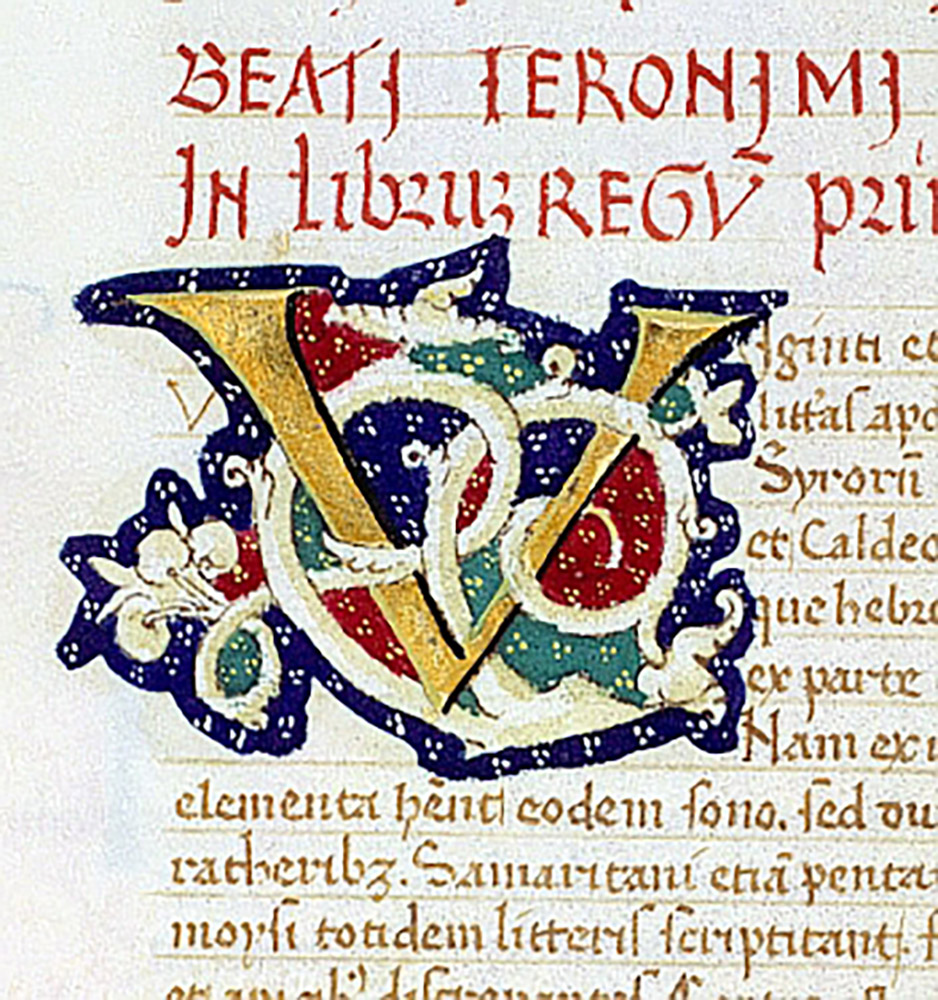 BEATJ IERONJMJ
JN librum REGṼ pri
V
Iginti et
litťas apo
Syrorū
et Caldeo
que hebre
ex parte
Nam exi
elementa hēnt eodem sono. sed du
ratheribꝫ. Samaritani etiā penta
moysi totidem litteris scriptitant